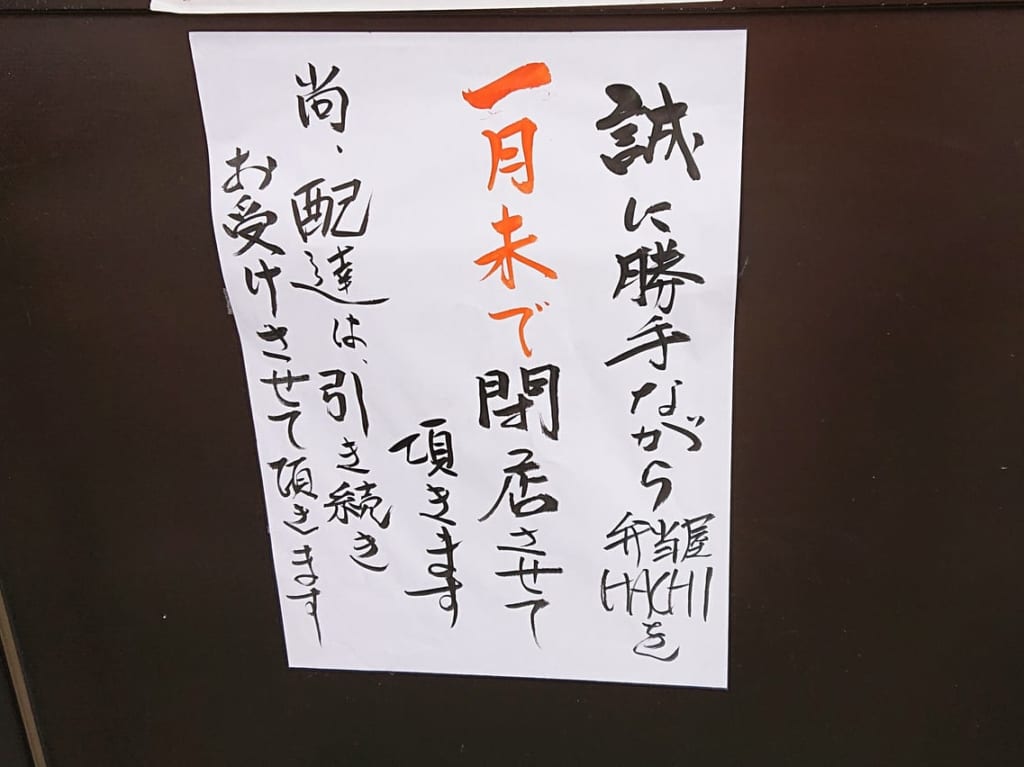 誠に勝手ながら弁当屋HACHIを
一月末で閉店させて
頂きます
尚、配達は、引き続き
お受けさせて頂きます